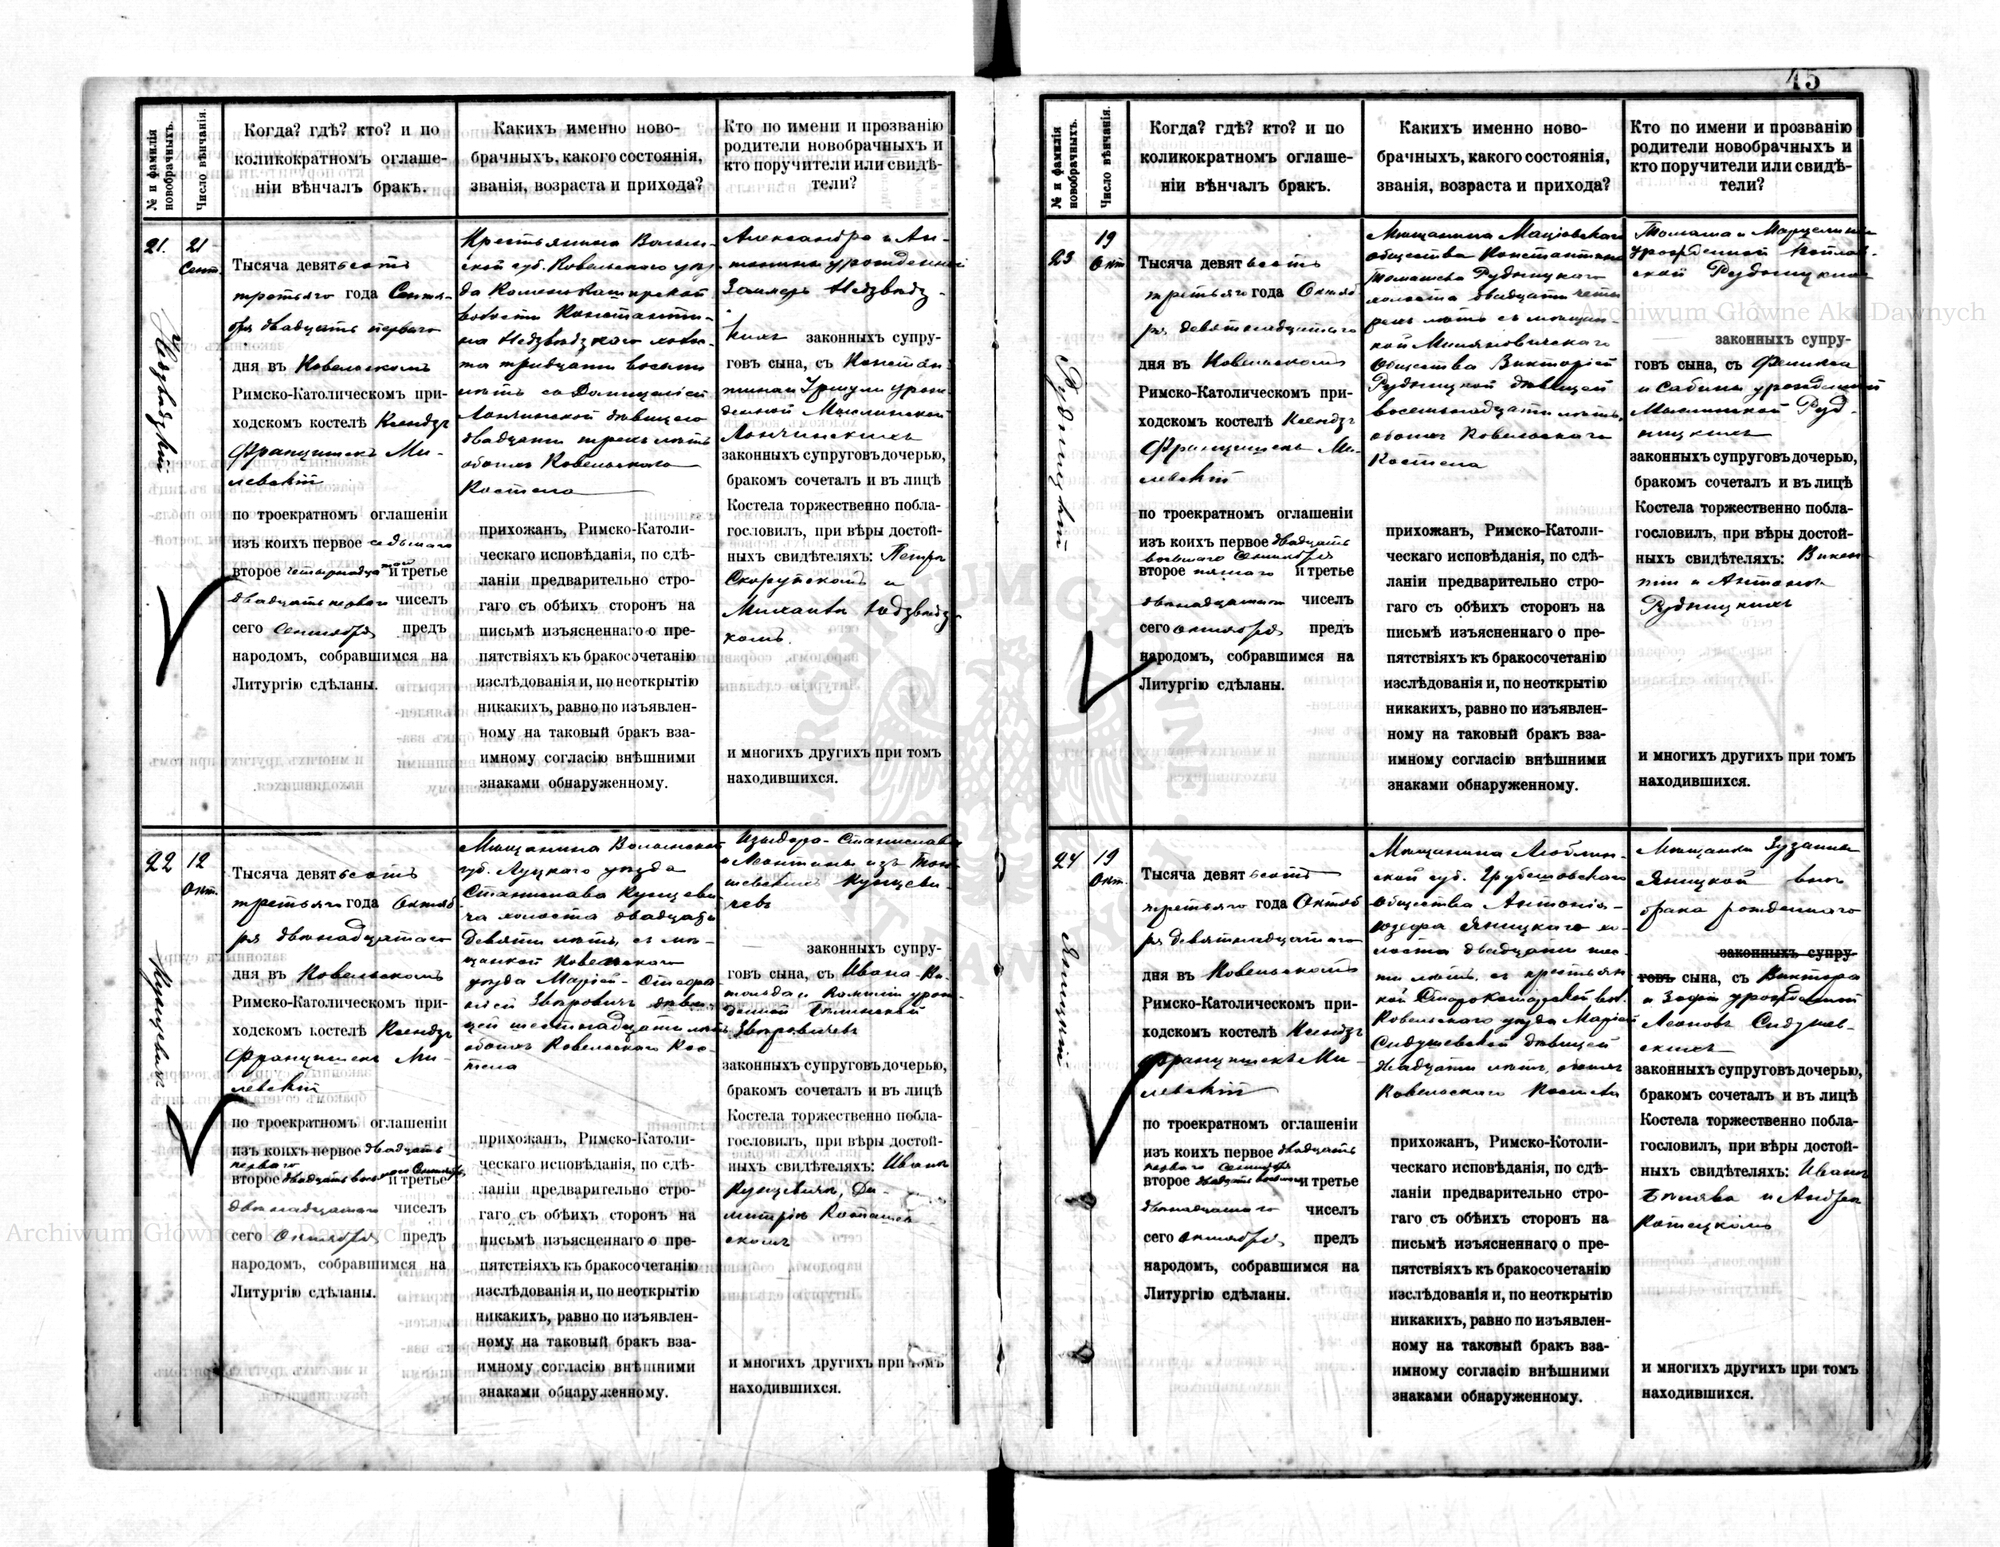 45
№ и фамилія новобрачныхъ.
Число вѣнчанія.
Когда? гдѣ? кто? и по
коликократномъ оглаше-
ніи вѣнчалъ бракъ.
Какихъ именно ново-
брачныхъ, какого состоянія,
званія, возраста и прихода?
Кто по имени и прозванію
родители новобрачныхъ и
кто поручители или свидѣ-
тели?
21.
21
Сент.
Тысяча девятьсотъ
третьяго года Сентя-
бря двадцать перваго
дня въ Ковельскомъ
Римско-Католическомъ при-
ходскомъ костелѣ Ксендзъ
Францишекъ Ми-
левскій
по троекратномъ оглашеніи
изъ коихъ первое седьмаго
второе четырнадцатаго и третье
двадцать перваго чиселъ
сего сентября предъ
народомъ, собравшимся на
Литургію сдѣланы.
Крестьянина Волын-
ской губ. Ковельского уѣз-
да Камень-Каширской
волости Константи-
на
тридцати восьми
лѣтъ съ
дѣвицею
двадцати трехъ лѣтъ
обоихъ Ковельскаго
Костела
прихожанъ, Римско-Католи-
ческаго исповѣданія, по сдѣ-
ланіи предварительно стро-
гаго съ обѣихъ сторонъ на
письмѣ изъясненнаго о пре-
пятствіяхъ къ бракосочетанію
изслѣдованія и, по неоткрытію
никакихъ, равно по изъявлен-
ному на таковый бракъ вза-
имному согласію внѣшними
знаками обнаруженному.
Александра и Ан-
тонины урожденной
законныхъ супру-
говъ сына, съ Констан-
тина и Уршули урож-
денной Мыслинской
Лончинскихъ
законныхъ супруговъ дочерью,
бракомъ сочеталъ и въ лицѣ
Костела торжественно побла-
гословилъ, при вѣры достой-
ныхъ свидѣтеляхъ: Петрѣ
и
комъ.
и многихъ другихъ при томъ
находившихся.
22
12
Окт.
Кунцевичъ
Тысяча девятьсотъ
третьяго года Октяб
ря двѣнадцатаго
дня въ Ковельскомъ
Римско-Католическомъ при-
ходскомъ костелѣ Ксендзъ
Францишекъ Ми-
левскій
по троекратномъ оглашеніи
изъ коихъ первое двадцать
перваго
второе двадцать восьмаго Сентября и третье
двѣнадцатаго чиселъ
сего Октября предъ
народомъ, собравшимся на
Литургію сдѣланы.
Мѣщанина Волынской
губ. Луцкаго уѣзда
Станислава Кунцеви-
ча холоста двадцати
девяти лѣтъ, съ мѣ-
щанкой Ковельскаго
уѣзда Маріей-Стефа-
ніей дѣви-
цей шестнадцати лѣтъ
обоихъ Ковельскаго Кос-
тела
прихожанъ, Римско-Католи-
ческаго исповѣданія, по сдѣ-
ланіи предварительно стро-
гаго съ обѣихъ сторонъ на
письмѣ изъясненнаго о пре-
пятствіяхъ къ бракосочетанію
изслѣдованія и, по неоткрытію
никакихъ, равно по изъявлен-
ному на таковый бракъ вза-
имному согласію внѣшними
знаками обнаруженному.
Изыдора-Станислава
и
Кунцеви-
чевъ
законныхъ супру-
говъ сына, съ Ивана-
урож-
денной
законныхъ супруговъ дочерью,
бракомъ сочеталъ и въ лицѣ
Костела торжественно побла-
гословилъ, при вѣры достой-
ныхъ свидѣтеляхъ: Иванѣ
Кунцевичѣ,
и многихъ другихъ при томъ
находившихся.
№ и фамилія новобрачныхъ.
Число вѣнчанія.
Когда? гдѣ? кто? и по
коликократномъ оглаше-
ніи вѣнчалъ бракъ.
Какихъ именно ново-
брачныхъ, какого состоянія,
званія, возраста и прихода?
Кто по имени и прозванію
родители новобрачныхъ и
кто поручители или свидѣ-
тели?
23
19
Окт.
Рудницкій
Тысяча девятьсотъ
третьяго года Октяб
ря девятнадцатаго
дня въ Ковельскомъ
Римско-Католическомъ при-
ходскомъ костелѣ Ксендзъ
Францишекъ Ми-
левскій
по троекратномъ оглашеніи
изъ коихъ первое двадцать
восьмаго Сентября
второе пятаго и третье
двѣнадцатаго чиселъ
сего октября предъ
народомъ, собравшимся на
Литургію сдѣланы.
Мѣщанина Маціовскаго
общества Константина
Рудницкаго
холоста двадцати четы
рехъ лѣтъ съ мѣщан-
кой Миляновичскаго
Общества Викторіей
Рудницкой дѣвицей
восемнадцати лѣтъ,
обоихъ Ковельскаго
Костела
прихожанъ, Римско-Католи-
ческаго исповѣданія, по сдѣ-
ланіи предварительно стро-
гаго съ обѣихъ сторонъ на
письмѣ изъясненнаго о пре-
пятствіяхъ къ бракосочетанію
изслѣдованія и, по неоткрытію
никакихъ, равно по изъявлен-
ному на таковый бракъ вза-
имному согласію внѣшними
знаками обнаруженному.
Томаша и Марцелины
урожденной
Рудницкихъ
законныхъ супру-
говъ сына, съ Феликса
и Сабины урожденной
Руд-
ницкихъ
законныхъ супруговъ дочерью,
бракомъ сочеталъ и въ лицѣ
Костела торжественно побла-
гословилъ, при вѣры достой-
ныхъ свидѣтеляхъ: Викен-
тіи и Антонѣ
Рудницкихъ
и многихъ другихъ при томъ
находившихся.
24
19
Окт.
Яницкій
Тысяча девятьсотъ
третьяго года Октяб
ря девятнадцатаго
дня въ Ковельскомъ
Римско-Католическомъ при-
ходскомъ костелѣ Ксендзъ
Францишекъ Ми-
левскій
по троекратномъ оглашеніи
изъ коихъ первое двадцать
перваго Сентября
второе двадцать восьмаго и третье
двѣнадцатаго чиселъ
сего октября предъ
народомъ, собравшимся на
Литургію сдѣланы.
Мѣщанина Люблин-
ской губ. Грубешовскаго
общества Антонія-
Юзефа Яницкаго хо-
лоста двадцати шес-
ти лѣтъ, съ крестьян
кой Старокошарской вол.
Ковельскаго уѣзда Маріей
дѣвицей
двадцати лѣтъ, обоихъ
Ковельскаго Костела
прихожанъ, Римско-Котоли-
ческаго исповѣданія, по сдѣ-
ланіи предварительно стро-
гаго съ обѣихъ сторонъ на
письмѣ изъясненнаго о пре-
пятствіяхъ къ бракосочетанію
изслѣдованія и, по неоткрытію
никакихъ, равно по изъявлен-
ному на таковый бракъ вза-
имному согласію внѣшними
знаками обнаруженному.
Мѣщанки Зузанны
Яницкой внѣ
брака рожденнаго
законныхъ супру-
говъ сына, съ Виктора
и Зофіи урожденной
законныхъ супруговъ дочерью,
бракомъ сочеталъ и въ лицѣ
Костела торжественно побла-
гословилъ, при вѣры достой-
ныхъ свидѣтеляхъ: Иванѣ
и Андреѣ
и многихъ другихъ при томъ
находившихся.
Archiwum Główne Akt Dawnych
Archiwum Główne Akt Dawnych
ARCHIWUM GŁÓWNE AKT DAWNYCH